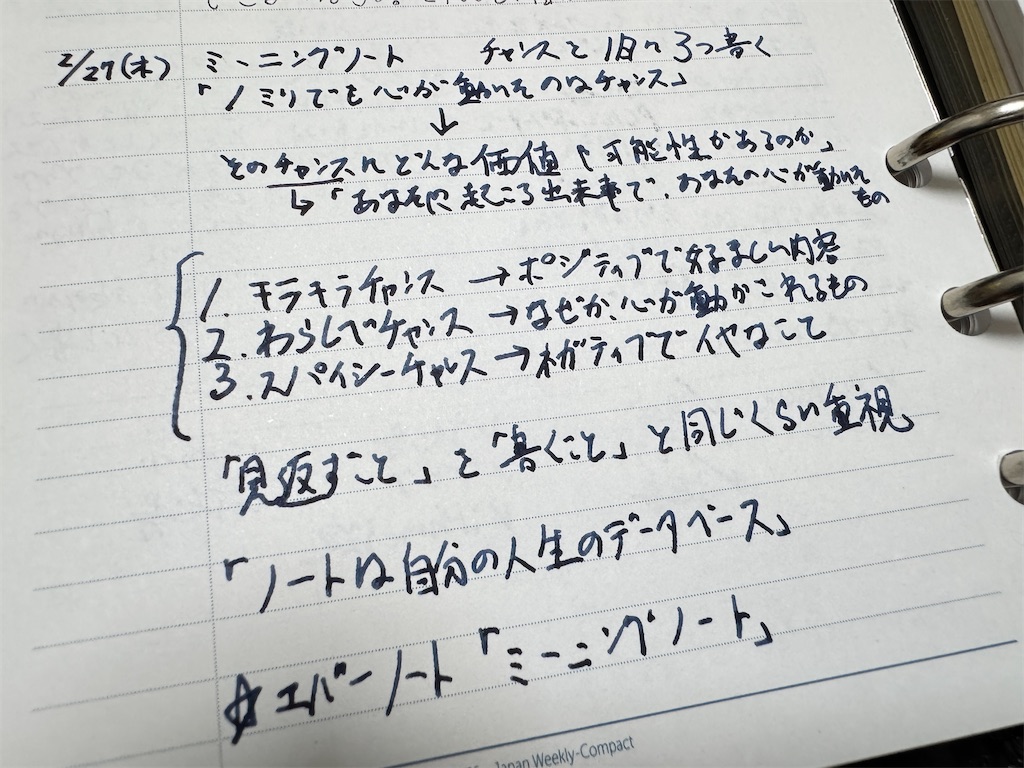 2/27(木) ミーニングノート チャンスを1日に3つ書く
「1ミリでも心が動いたのはチャンス」
↓
そのチャンスにどんな価値や可能性があるのか」
↳「あなたに起こる出来事で、あなたの心が動いた
もの
1. キラキラチャンス →ポジティブで好ましい内容
2. わらしべチャンス →なぜか、心が動かされるもの
3. スパイシーチャンス →ネガティブでイヤなこと
「見返すこと」を「書くこと」と同じくらい重視
「ノートは自分の人生のデータベース」
☆エバーノート「ミーニングノート」
Japan Weekly-Compact